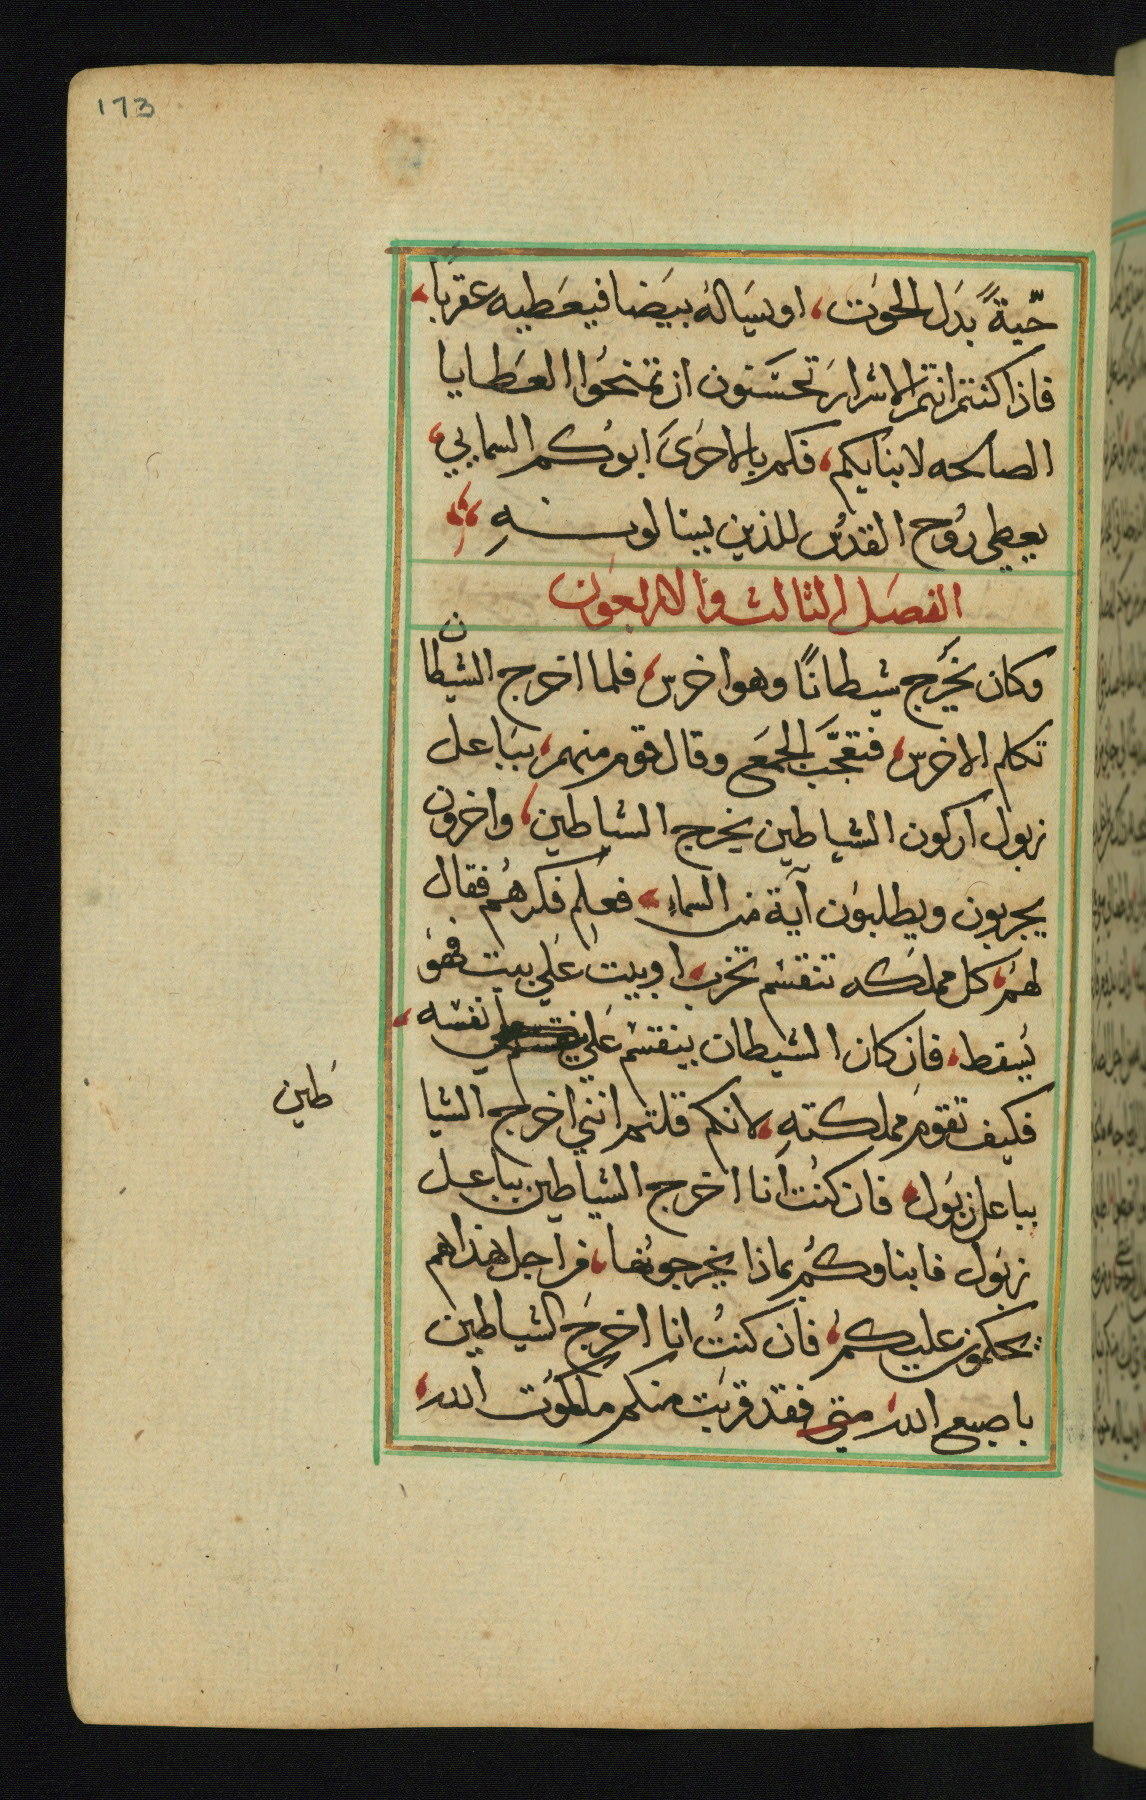 173
حّيةً بدَل الحوَت، او يسَاله بيَضا فيعَطيه عقربًا،
فاذا كنتم انتم الاشرارَ تحسَنون ان تمنحُوا العطايا
الصالحه لابنايكم، فكم بالاحرَىَ ابوكم السمايي،
يعطي رُوح القدُس للذين يسالونه
الفصَل الثالث والاربعوَن
وكان يخرج شيطانًا وهو اخرس، فلما اخرج الشيطان
تكلم الاخرس، فتعجَّب الجمعَ وقال قوم منهم، ببَاعل
زبول اركون الشياطين يخرج الشياطين، واخرون
يجربون ويطلبوُن آية من السماءِ، فعلِم فكرهُم فقال
لهُم، كل مملكه تنقسم تخرب، او بيت عَلي بيت فهوَ
يسقط، فان كان الشيطان ينقسم عَلي نفسه،
فكيف تقومَ مملكتهِ، لانكم قلتم انني اخرج الشيا
طَين
بباعل زبَول، فان كنُت انا اخرج الشياطين بباعل
زبَول فابناوكُم بماذا يخرجونها، فمن اجل هذا هم
يحكمون عليكمُ، فان كنتُ انا اخرجَ الشياطين
باصبع الله، متي فقد قربَت منكم ملكوُت الله،